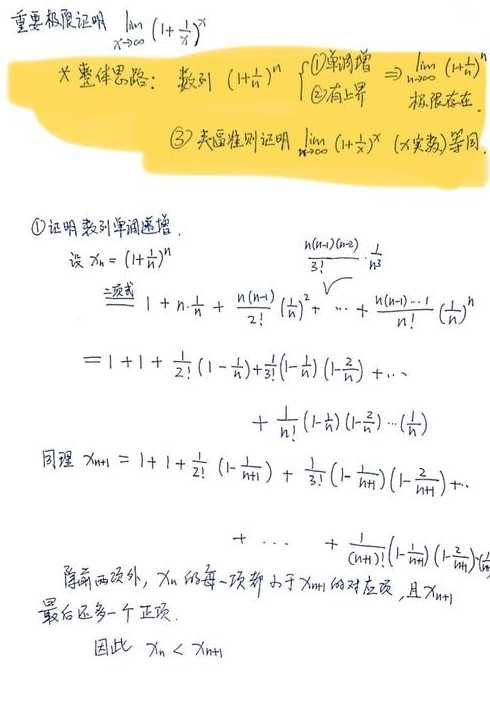 重要极限证明 lim x→∞ (1+1/x)^x
* 整体思路: 数列 (1+1/n)^n { ①单调增 ②有上界 ⇒ lim n→∞ (1+1/n)^n 极限存在.
③ 夹逼准则证明 lim x→∞ (1+1/x)^x (x实数)等同.
①证明数列单调递增.
设 xn = (1+1/n)^n
n(n-1)(n-2)/3! · 1/n^3
二项式 = 1 + n·1/n + n(n-1)/2! (1/n)^2 + ··· + n(n-1)···1/n! (1/n)^n
= 1+1+ 1/2! (1-1/n) + 1/3! (1-1/n)(1-2/n) + ···
+ 1/n! (1-1/n)(1-2/n)···(1/n)
同理 xn+1 = 1+1+ 1/2! (1-1/(n+1)) + 1/3! (1-1/(n+1))(1-2/(n+1)) + ···
+ ··· + 1/(n+1)! (1-1/(n+1))(1-2/(n+1))
除前两项外, xn 的每一项都小于 xn+1 的对应项, 且 xn+1
最后还多一个正项.
因此 xn < xn+1